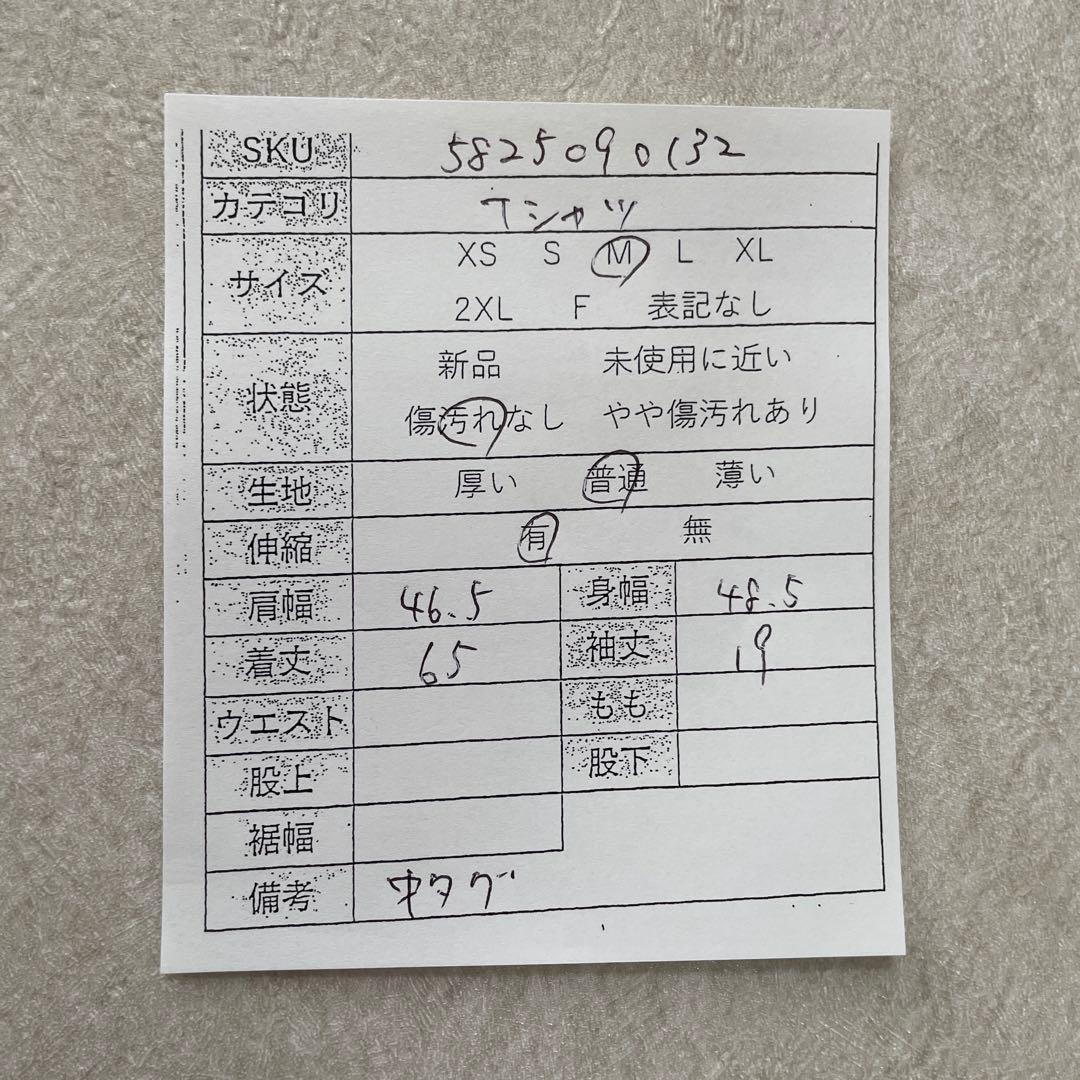 SKU 5825090132
カテゴリ Tシャツ
サイズ XS S M L XL
2XL F 表記なし
状態 新品 未使用に近い
傷汚れなし やや傷汚れあり
生地 厚い 普通 薄い
伸縮 有 無
肩幅 46.5 身幅 48.5
着丈 65 袖丈 19
ウエスト もも
股上 股下
裾幅
備考 中タグ